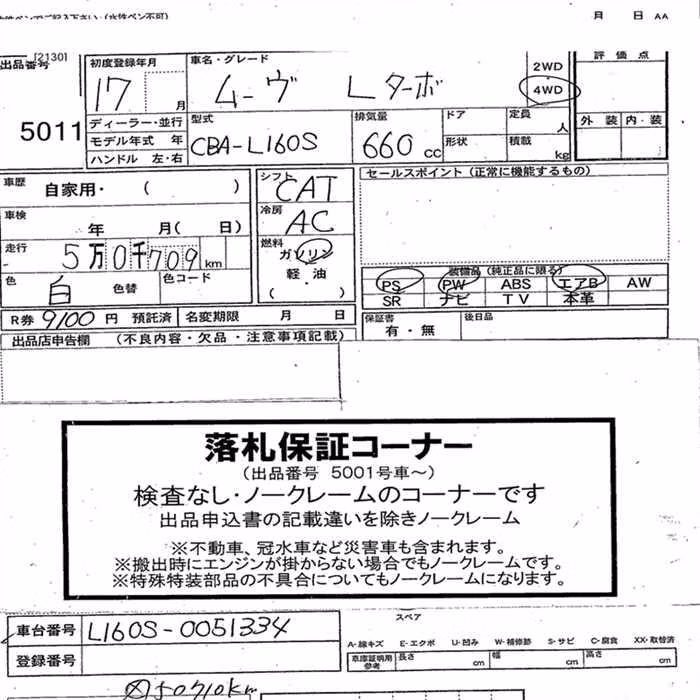 月 日 AA
[2130]
出品番号
5011
初度登録年月
17 月
車名・グレード
ムーヴ Lターボ
2WD
4WD
評価点
外装 内・装
ディーラー・並行
モデル年式 年
ハンドル 左・右
型式
CBA-L160S
排気量
660 cc
ドア
形状
定員 人
積載 kg
車歴 自家用・( )
車検 年 月( 日)
走行 5万0千709km
色 白 色替
色コード
シフト CAT
冷房 AC
燃料 ガソリン
軽・油
( )
セールスポイント(正常に機能するもの)
装備品(純正品に限る)
PS PW ABS エアB AW
SR ナビ TV 本革
R券 9100 円 預託済 名変期限 月 日
保証書 有・無
後日品
出品店申告欄 (不良内容・欠品・注意事項記載)
落札保証コーナー
(出品番号 5001号車~)
検査なし・ノークレームのコーナーです
出品申込書の記載違いを除きノークレーム
※不動車、冠水車など災害車も含まれます。
※搬出時にエンジンが掛からない場合でもノークレームです。
※特殊特装部品の不具合についてもノークレームになります。
車台番号 L160S-0051334
登録番号
スペア
A-線キズ E-エクボ U-凹み W-補修跡 S-サビ C-腐食 XX-取替済
車庫証明用参考 長さ cm 幅 cm 高さ cm
50710km